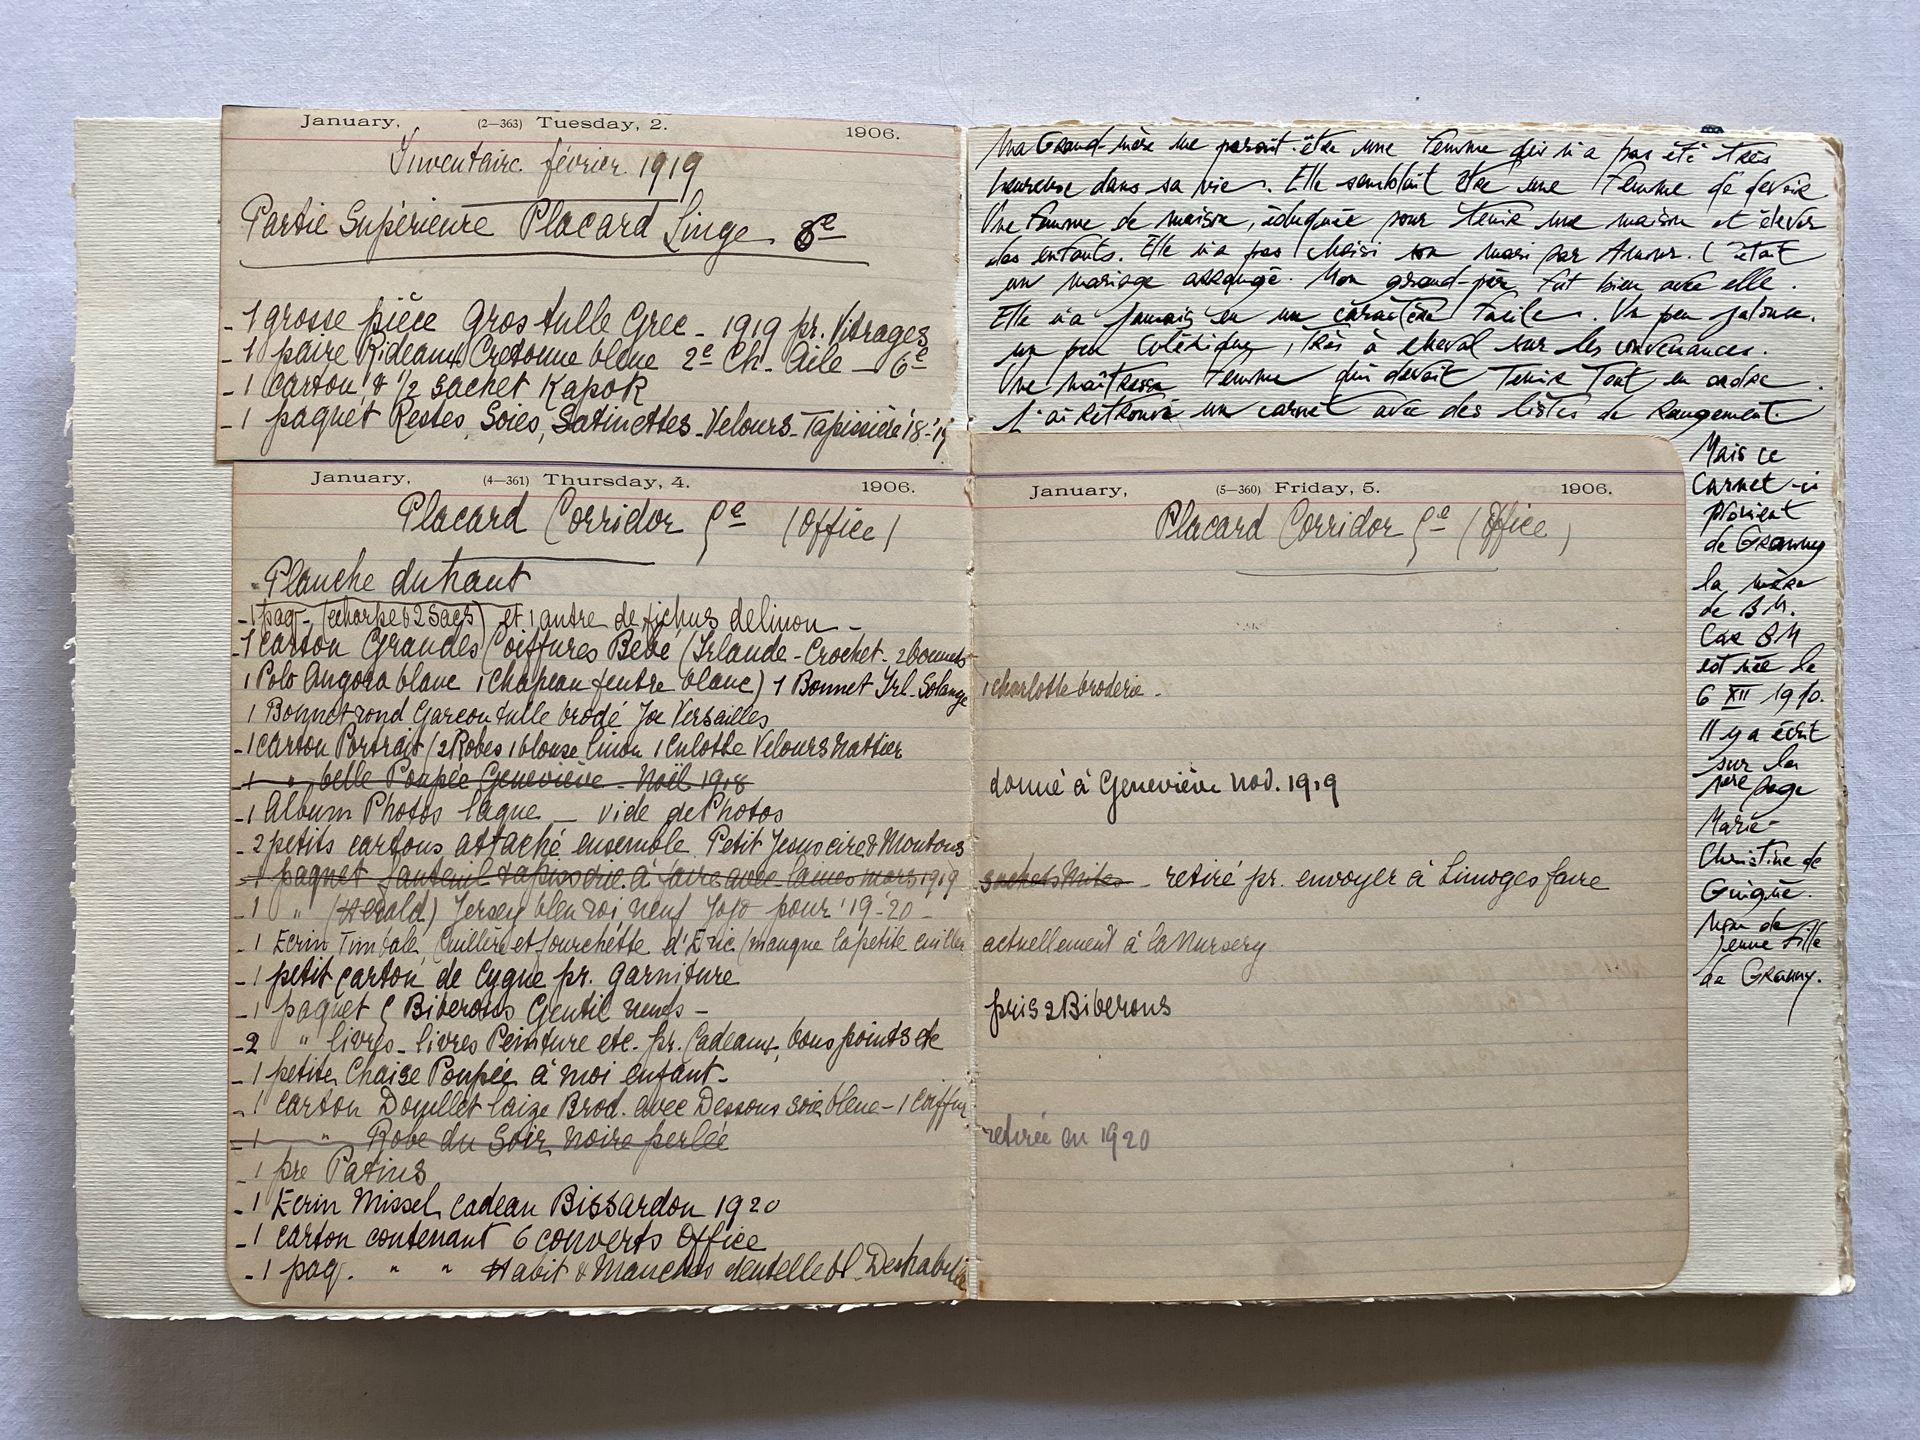 January, (2—363) Tuesday, 2. 1906.
Inventaire février 1919
Partie Supérieure Placard Linge 8e
- 1 grosse pièce Gros tulle Grec - 1919 pr. Vitrages
- 1 paire Rideaux Cretonne bleue 2e Ch. Aile - 6e
- 1 Carton & 1/2 sachet Kapok
- 1 paquet Restes, Soies, Satinettes - Velours - Tapissière 18-19
January, (4—361) Thursday, 4. 1906.
Placard Corridor (Office)
Planche du haut
- 1 paq - (écharpe & 2 Sacs) et 1 autre de fichus de linon -
- 1 Carton Grandes Coiffures Bébé (Irlande - Crochet - 2 bonnets
1 Polo Angora blanc 1 chapeau feutre blanc) 1 Bonnet Irl. Solange
1 Bonnet rond Garçon tulle brodé Joe Versailles
- 1 carton Portrait (2 Robes 1 blouse linon 1 culotte Velours Nattier
- 1 " belle Poupée Geneviève - Noël 1918
- 1 Album Photos laque - vide de Photos
- 2 petits cartons attaché ensemble Petit Jesus cire & Moutons
- 1 paquet fauteuil tapisserie à faire avec laines mars 1919
- 1 " (Herald) Jersey bleu roi neuf Jojo pour '19-'20 -
- 1 Ecrin Timbale, Cuillère et fourchette d'Eric (manque la petite cuiller
- 1 petit carton de Cygne pr. garniture
- 1 paquet Biberons Gentil neufs -
- 2 " livres - livres Peinture etc. pr. Cadeaux, bons points etc
- 1 petite Chaise Poupée à moi enfant -
- 1 Carton Douillet laize Brod. avec Dessous soie bleue - 1 Coiffur.
- 1 " Robe du Soir noire perlée
- 1 pre Patins
- 1 Ecrin Missel, Cadeau Bissardon 1920
- 1 carton contenant 6 couverts Office
- 1 paq. " " Habit & Manches dentelle bl. Deshabillé
Ma Grand-mère me parait être une femme qui n'a pas été très
heureuse dans sa vie. Elle semblait être une femme de devoir
Une femme de maison, éduquée pour tenir une maison et élever
des enfants. Elle n'a pas choisi son mari par Amour. C'était
un mariage arrangé. Mon grand-père fut bien avec elle.
Elle n'a jamais eu un caractère facile. Un peu jalouse.
un peu colérique, très à cheval sur les convenances.
Une maîtresse femme qui devait tenir tout en ordre.
J'ai retrouvé un carnet avec des listes de rangement.
Mais ce
Carnet-ci
provient
de Granny
la mère
de B.M.
Car BM
est née le
6 XII 1910.
Il y a écrit
sur la
1ère page
Marie-
Christine de
Guigné.
Nom de
jeune fille
de Granny.
January, (5—360) Friday, 5. 1906.
Placard Corridor (Office)
1 charlotte broderie.
donné à Geneviève nov. 1919
sachets Mites - retiré pr. envoyer à Limoges faire
actuellement à la Nursery
pris 2 Biberons
retirée en 1920